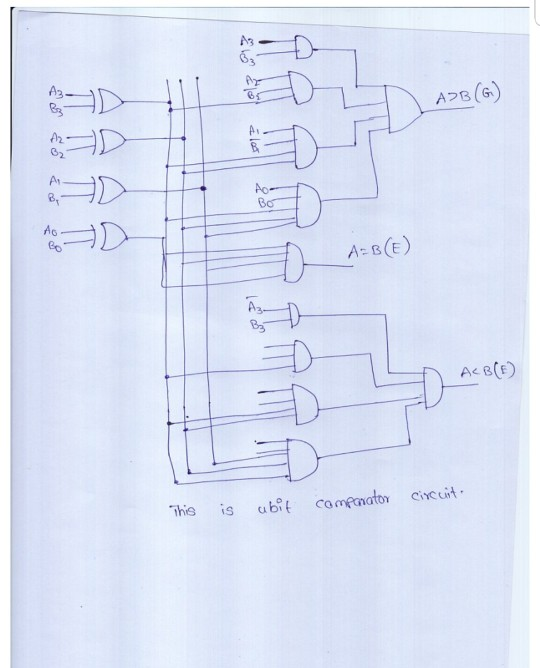 A3
B̅3
A3
B3
A2
B̅2
A>B(G)
A2
B2
A1
B̅1
A1
B1
A0
B0
A0
B0
A=B(E)
A̅3
B3
A<B(E)
This is ubit comparator circuit.